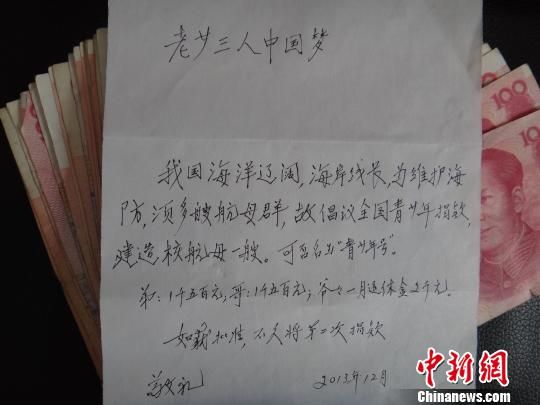 老少三人中国梦
我国海洋辽阔,海岸线长,为维护海
防,须多艘航母群,故倡议全国青少年捐款,
建造核航母一艘。可否名为"青少年号"。
弟:1千五百元,哥:1千五百元,爷爷一月退休金2千元。
如蒙批准,不久将第二次捐款
敬礼
2013年12月
100
100
100
中新网
www.chinanews.com